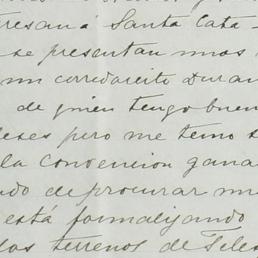 resan á Santa Cata-
se presentan unos
un corredorcito Duran
de quien tengo buen
eses pero me temo
la Convencion gana
do de procurar
está formalizando
los terrenos de